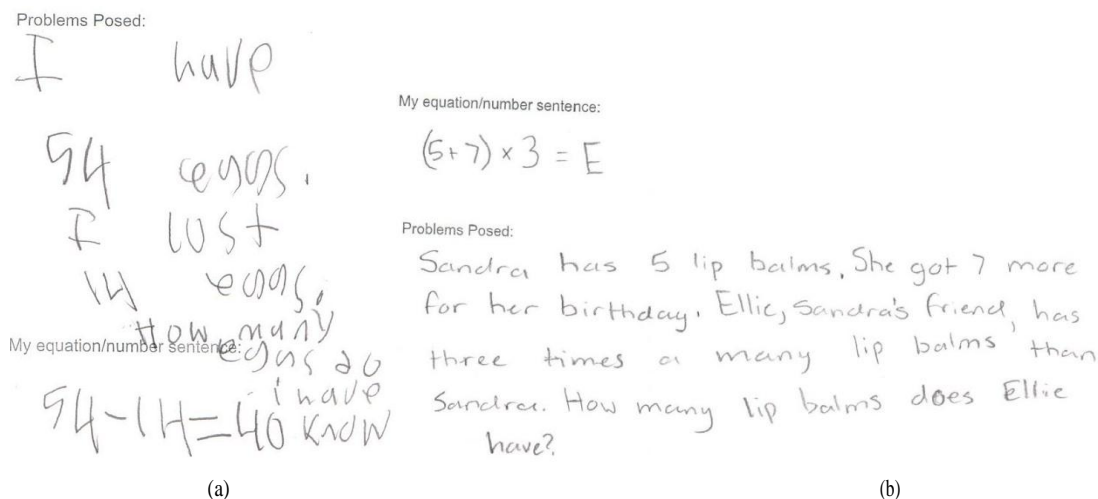 Problems Posed:
I have
54 eggs.
I lost
14 eggs.
How many
My equation/number sentence:
eggs do
i have
54-14=40 know
(a)
My equation/number sentence:
(5+7) × 3 = E
Problems Posed:
Sandra has 5 lip balms. She got 7 more
for her birthday. Ellie, Sandra's friend, has
three times a many lip balms than
Sandra. How many lip balms does Ellie
have?
(b)